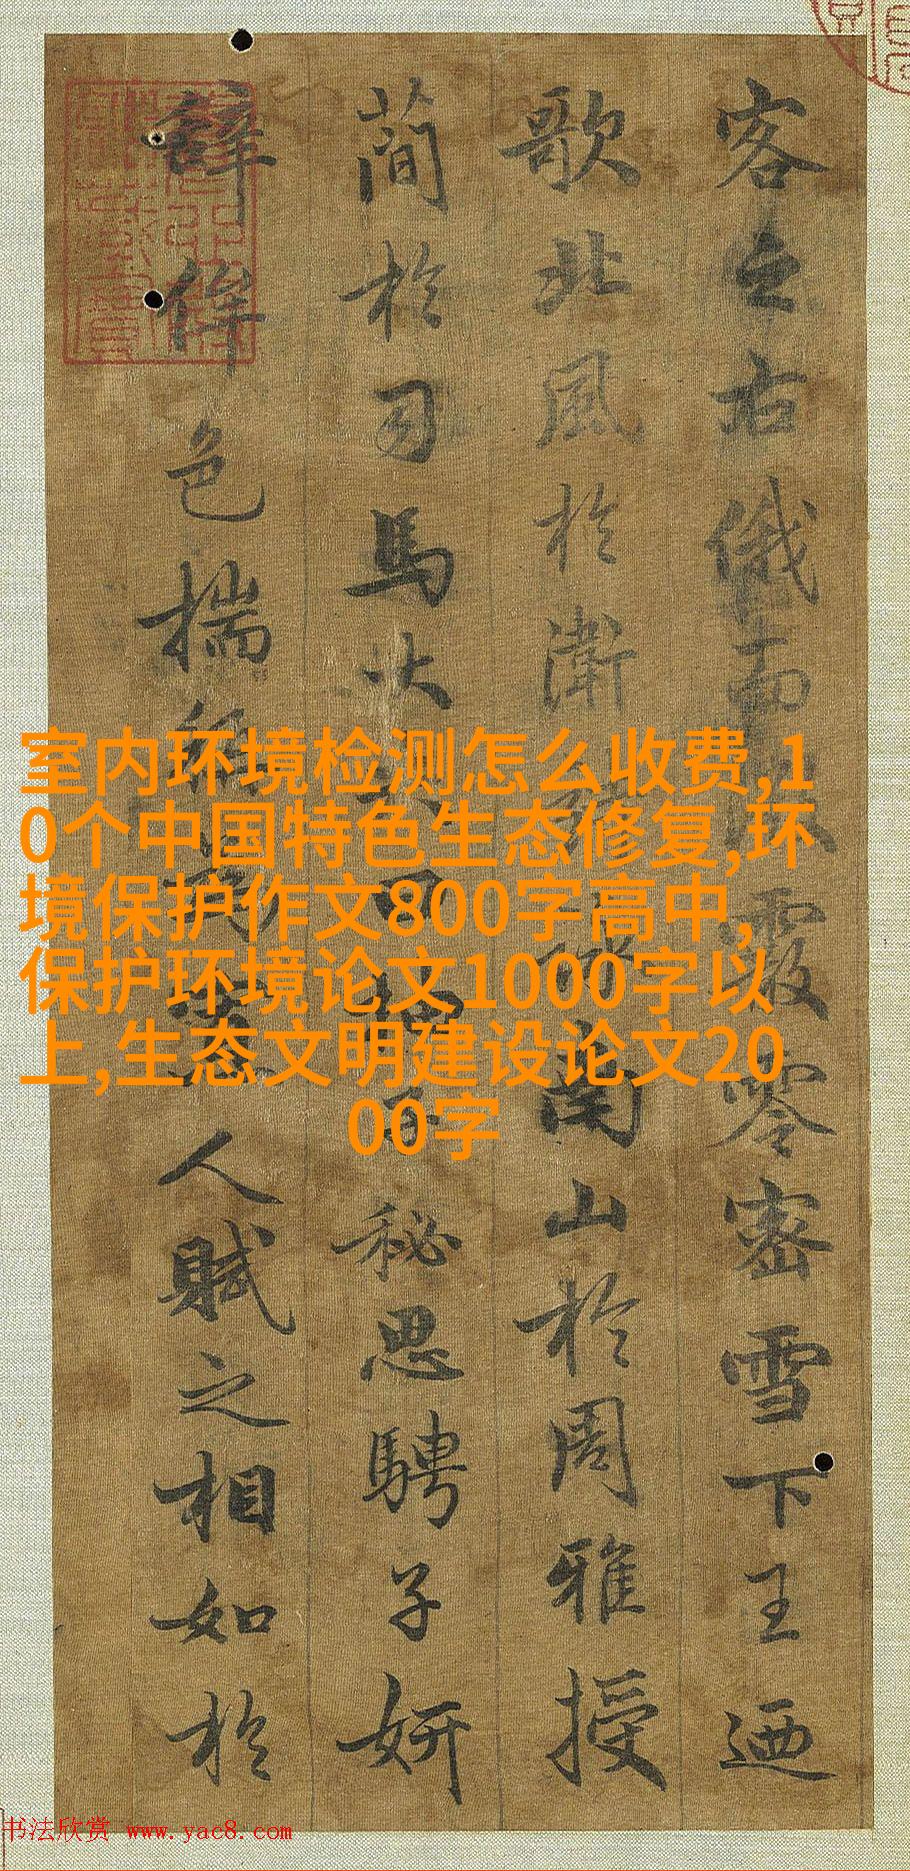 客之右俄而霰零密雪下王迺
歌北風於衛南山於周雅授
簡於司馬大秘思騁子妍
辭侔色揣人賦之相如於
室内环境检测怎么收费,1
0个中国特色生态修复,环
境保护作文800字高中,
保护环境论文1000字以
上,生态文明建设论文20
00字
书法欣赏 www.yac8.com